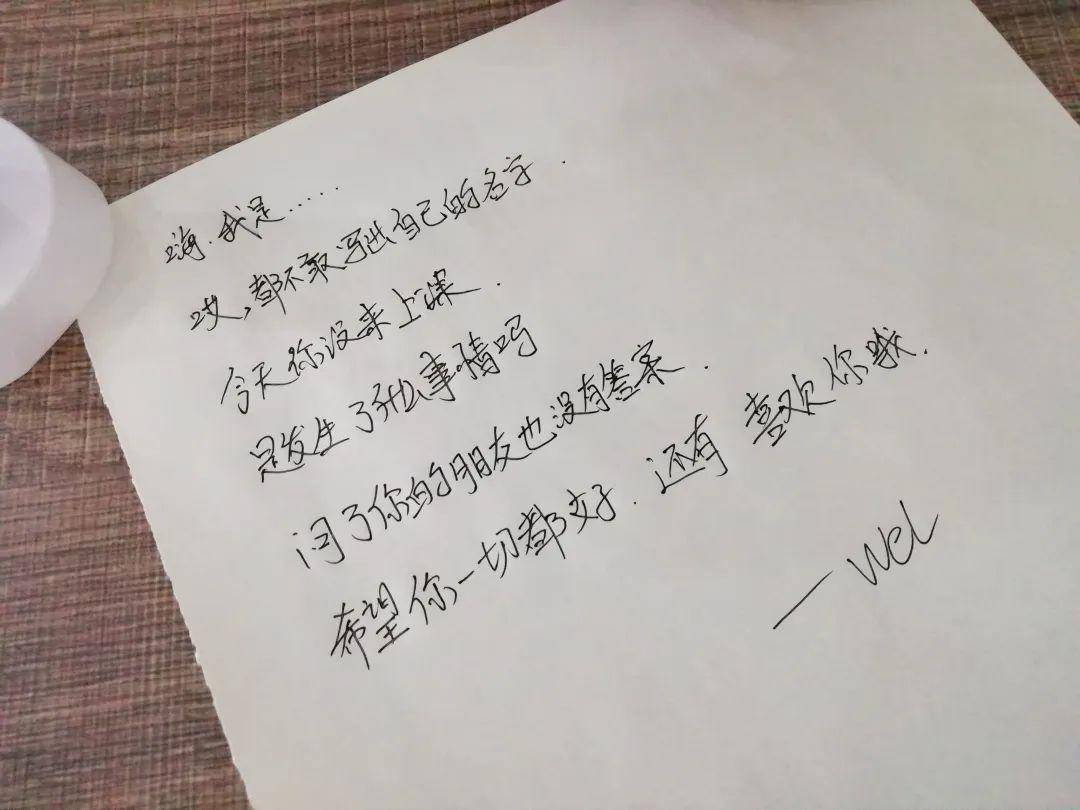 嗨.我是……
哎,都不敢写出自己的名字.
今天你没来上课.
是发生了什么事情吗
问了你的朋友也没有答案.
希望你一切都好.还有 喜欢你哦.
—wcl